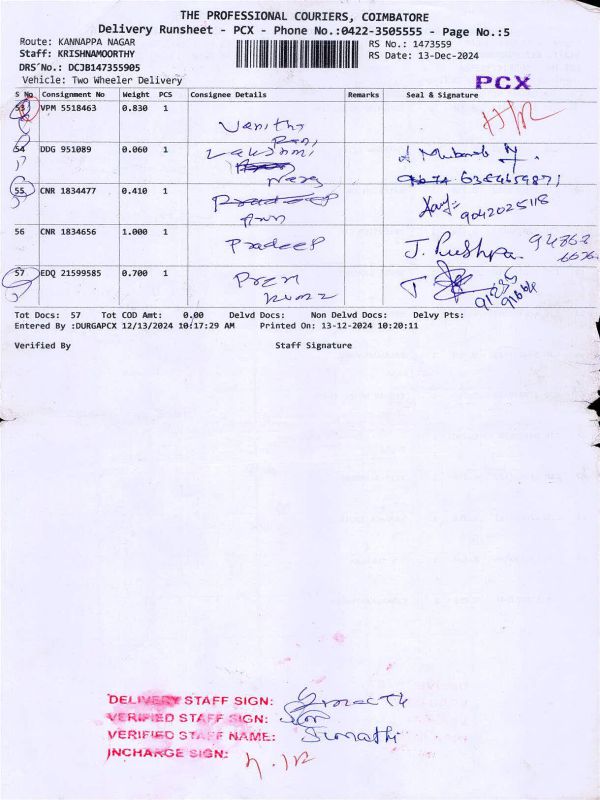 THE PROFESSIONAL COURIERS, COIMBATORE
Delivery Runsheet - PCX - Phone No.:0422-3505555 - Page No.:5
Route: KANNAPPA NAGAR
RS No.: 1473559
Staff: KRISHNAMOORTHY
RS Date: 13-Dec-2024
DRS No.: DCJB147355905
Vehicle: Two Wheeler Delivery
PCX
S No Consignment No Weight PCS Consignee Details Remarks Seal & Signature
53 VPM 5518463 0.830 1 Vanitha
54 DDG 951089 0.060 1 Lakshmi
6384659871
55 CNR 1834477 0.410 1 Pradeep
9042025118
56 CNR 1834656 1.000 1 Pradeep J. Pushpa
57 EDQ 21599585 0.700 1 Prem
Kumar
Tot Docs: 57 Tot COD Amt: 0.00 Delvd Docs: Non Delvd Docs: Delvy Pts:
Entered By :DURGAPCX 12/13/2024 10:17:29 AM Printed On: 13-12-2024 10:20:11
Verified By Staff Signature
DELIVERY STAFF SIGN:
VERIFIED STAFF SIGN:
VERIFIED STAFF NAME: Sumathi
INCHARGE SIGN: